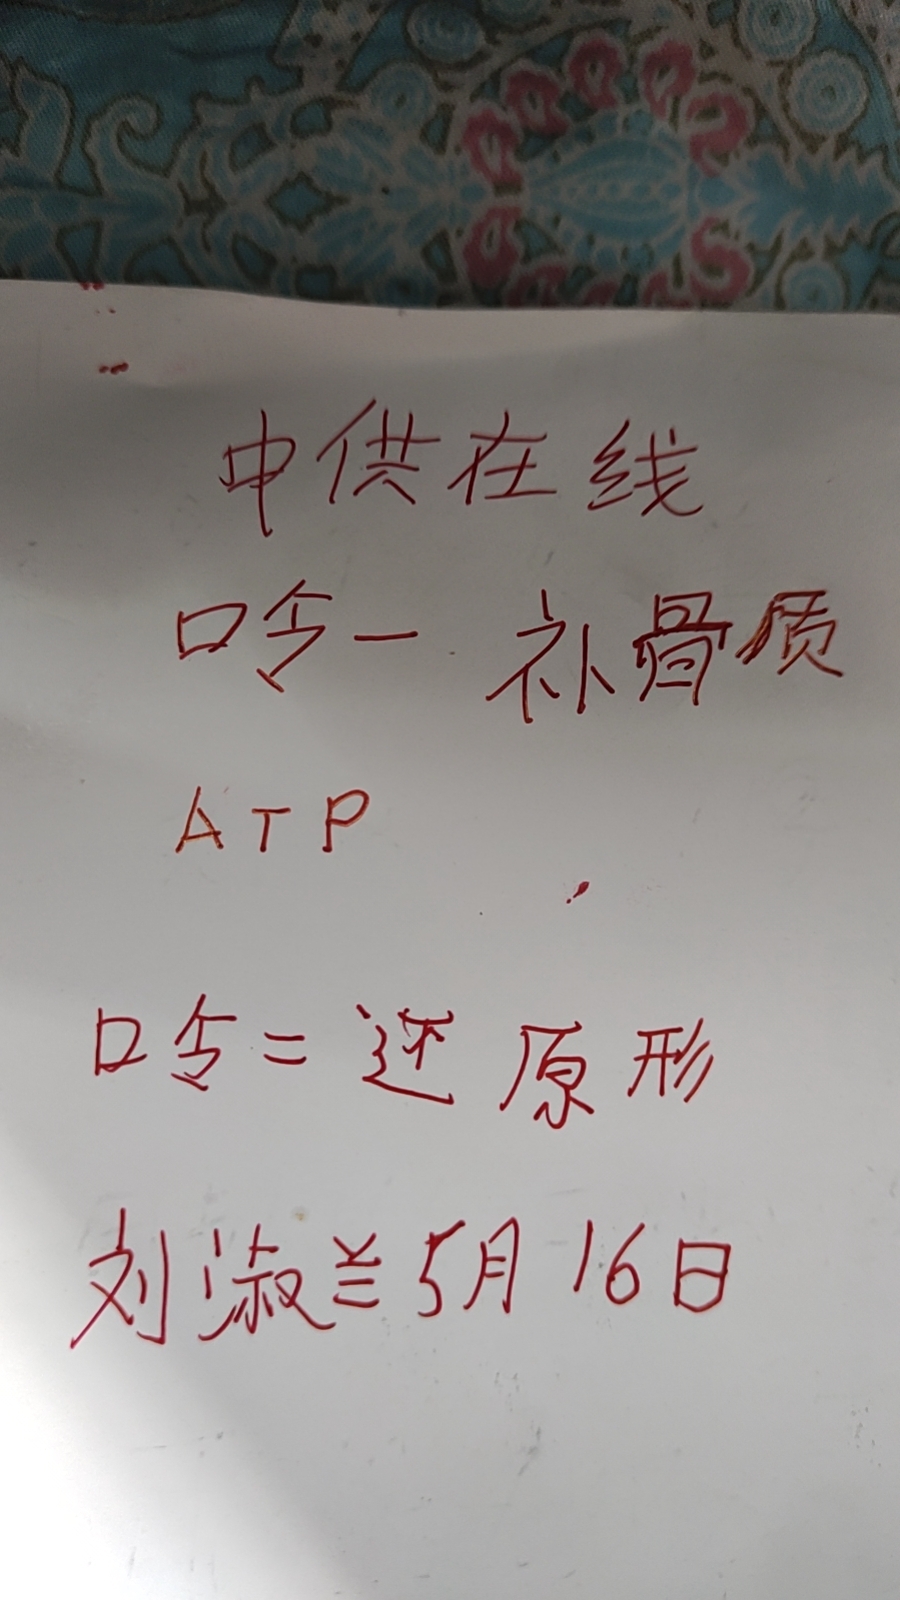 中供在线
口令一 补骨质
ATP
口令二 还原形
刘淑兰 5月16日